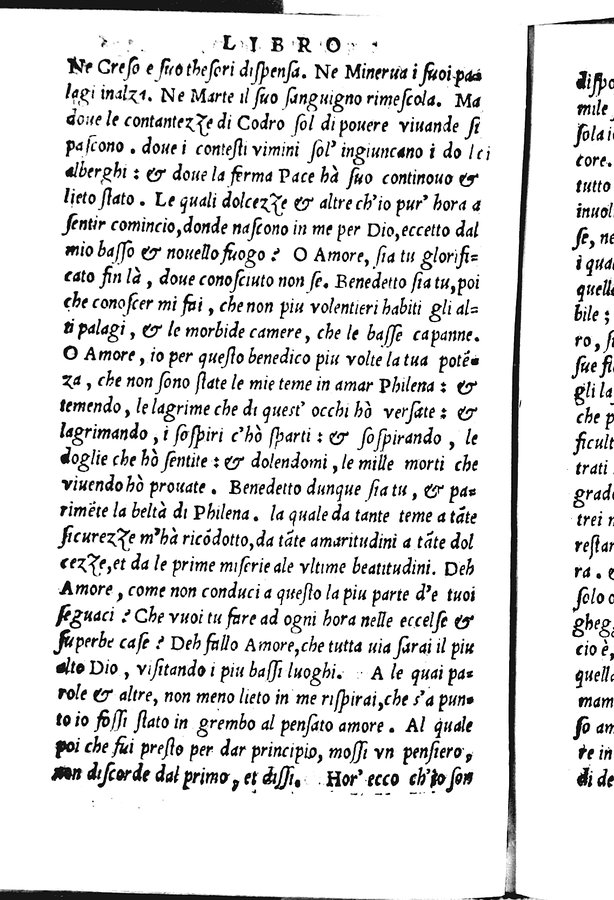 LIBRO
Ne Creso e suo thesori dispensa. Ne Minerua i suoi pa-
lagi inalza. Ne Marte il suo sanguigno rimescola. Ma
doue le contantezze di Codro sol di pouere viuande si
pascono. doue i contesti vimini sol' ingiuncano i do lci
alberghi : & doue la ferma Pace hà suo continouo &
lieto stato. Le quali dolcezze & altre ch'io pur' hora a
sentir comincio, donde nascono in me per Dio, eccetto dal
mio basso & nouello fuogo? O Amore, sia tu glorifi-
cato fin là, doue conosciuto non se. Benedetto sia tu, poi
che conoscer mi fai, che non piu volentieri habiti gli al-
ti palagi, & le morbide camere, che le basse capanne.
O Amore, io per questo benedico piu volte la tua potẽ-
za, che non sono state le mie teme in amar Philena : &
temendo, le lagrime che di quest' occhi hò versate : &
lagrimando, i sospiri c'hò sparti : & sospirando, le
doglie che hò sentite : & dolendomi, le mille morti che
viuendo hò prouate. Benedetto dunque sia tu, & pa-
rimẽte la beltà di Philena. la quale da tante teme a tãte
sicurezze m'hà ricõdotto, da tãte amaritudini a tãte dol
cezze, et da le prime miserie ale vltime beatitudini. Deh
Amore, come non conduci a questo la piu parte d'e tuoi
seguaci? Che vuoi tu fare ad ogni hora nelle eccelse &
superbe case? Deh fallo Amore, che tutta uia sarai il piu
alto Dio, visitando i piu bassi luoghi. A le quai pa-
role & altre, non meno lieto in me rispirai, che s'a pun-
to io fossi stato in grembo al pensato amore. Al quale
poi che fui presto per dar principio, mossi vn pensiero,
non discorde dal primo, et dissi. Hor' ecco ch'io son
dispo
mile
sola i
core.
tutto
inuol
se, ne
i qua
quell
bile ;
ro, si
sue fi
gli la
che p
ficult
trati
grad
trei n
restar
ra.
solo o
ghegg
cio è,
quell
mam
so am
te in
di de